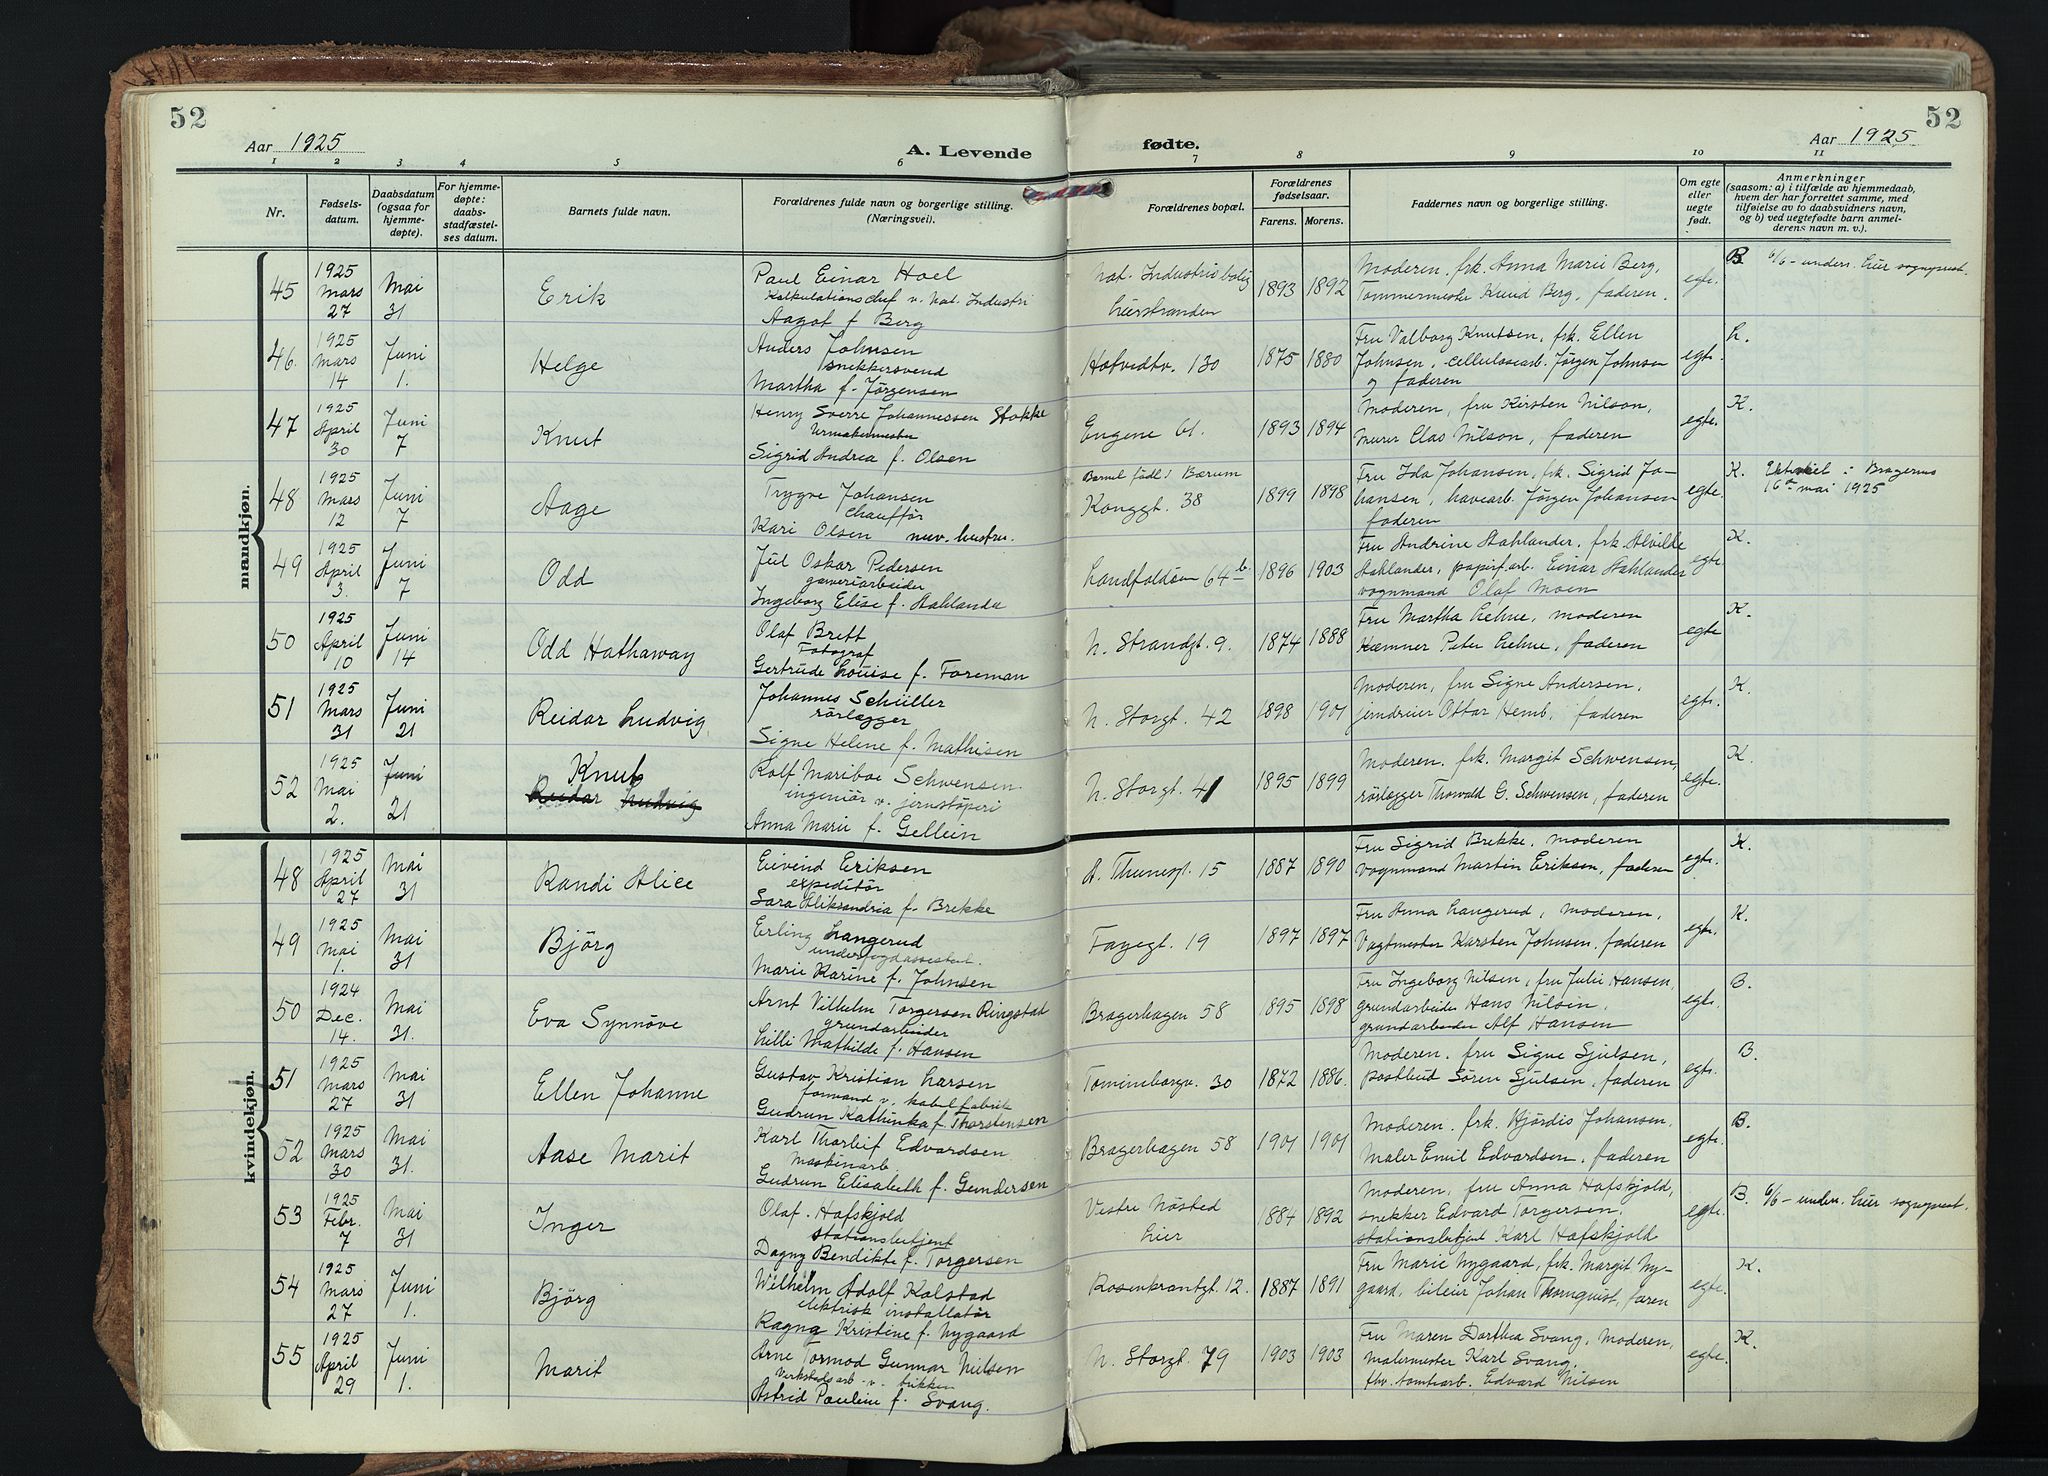 52
52
Aar 1925
A. Levende
fødte.
Aar 1925
1 2 3 4 5 6 7 8 9 10 11
Nr.
Fødsels-
datum.
Daabsdatum
(ogsaa for
hjemme-
døpte).
For hjemme-
døpte:
daabs-
stadfæstel-
ses datum.
Barnets fulde navn.
Forældrenes fulde navn og borgerlige stilling.
(Næringsvei).
Forældrenes bopæl.
Forældrenes
fødselsaar.
Farens. Morens.
Faddernes navn og borgerlige stilling.
Om egte
eller
uegte
født.
Anmerkninger
(saasom: a) i tilfælde av hjemmedaab,
hvem der har forrettet samme, med
tilføielse av to daabsvidners navn,
og b) ved uegtefødte barn anmel-
derens navn m. v.).
mandkjøn.
45
1925
Mars
27
Mai
31
Erik
Paul Einar Hoel
Kalkulationschef v. Nat. Industri
Aagot f. Berg
Nat. Industri bolig
Lierstranden
1893 1892
Moderen. frk. Anna Marie Berg,
Tømmermester Knud Berg, faderen.
egte.
B. 6/6 - unders. Lier sogneprest.
46.
1925
Mars
14
Juni
1.
Helge
Anders Johnsen
snekkersvend
Martha f. Jørgensen
Hotvedtv. 130
1875 1880
Fru Valborg Knutsen, frk. Ellen
Johnsen, cellulosearb. Jørgen Johnsen
og faderen
egte.
L.
47
1925
April
30
Juni
7
Knut
Henry Sverre Johannessen Stokke
Urmakermester
Sigrid Andrea f. Olsen
Engene 61.
1893 1894
Moderen, fru Kirsten Nilson,
Murer Clas Nilson, faderen
egte.
K.
48
1925
Mars
12
Juni
7
Aage
Trygve Johansen
chauffør
Kari Olsen nuv. hustru.
Barnet født i Bærum
Konggt. 38
1899 1898
Fru Ida Johansen, frk. Sigrid Jo-
hansen, havearb. Jørgen Johansen
faderen
egte.
K. Bragernes
16de mai 1925
49
1925
April
3.
Juni
7
Odd
Jul Oskar Pedersen
garveriarbeider
Ingeborg Elise f. Stahlander
Landfaldsøen 64 b.
1896 1903
Fru Andrine Stahlander, frk. Alvilde
Stahlander, papirfarb. Einar Stahlander
vognmand Olaf Moen
egte.
K.
50
1925
April
10
Juni
14
Odd Hathaway
Olaf Brett
Fotograf
Gertrude Louise f. Foreman
N. Strandgt. 9.
1874 1888
Fru Martha Lehne, moderen
Kæmner Peter Lehne, faderen
egte
K.
51
1925
Mars
31
Juni
21
Reidar Ludvig,
Johannes Schüller
rørlægger
Signe Helene f. Mathisen
N. Storgt. 42
1898 1901
Moderen, fru Signe Andersen,
jerndreier Ottar Hemb, faderen
egte.
K.
52
1925
Mai
2.
Juni
21
Knut
Reidar Ludvig
Rolf Mariboe Schwensen
ingeniør v. jernstøperi
Anna Marie f. Gellein
N. Storgt. 41
1895 1899
Moderen. frk. Margit Schwensen,
rørlægger Thorvald G. Schwensen, faderen
egte.
K.
kvindekjøn.
48
1925
April
27
Mai
31
Randi Alice
Eivind Eriksen
expeditør
Sara Aliksandria f. Brekke
A. Thunesgt. 15
1887 1890
Fru Sigrid Brekke, moderen
vognmand Martin Eriksen, faderen
egte.
K.
49
1925
Mai
1.
Mai
31
Bjørg
Erling Langerud
Marie Karine f. Johnsen
Fayegt. 19
1897 1897
Fru Anna Langerud, moderen,
Vagtmester Karsten Johnsen, faderen
egte.
K.
50
1924
Dec.
14.
Mai
31.
Eva Synnøve
Arnt Vilhelm Torgersen Ringstad
grundarbeider
Lilli Mathilde f. Hansen
Bragerhagen 58
1895 1898
Fru Ingeborg Nilsen, fru Julie Hansen,
grundarbeider Hans Nilsen,
grundarbeider Alf Hansen
egte.
B.
51
1925
Mars
27
Mai
31
Ellen Johanne
Gustav Kristian Larsen
formand v. kabelfabrik
Gudrun Kathinka f. Thorstensen
Tomineborgv. 30
1872 1886.
Moderen. fru Signe Sjulsen,
postbud Søren Sjulsen, faderen
egte.
B.
52
1925
Mars
30
Mai
31.
Aase Marit
Karl Thorleif Edvardsen
Maskinarb.
Gudrun Elisabeth f. Gundersen
Bragerhagen 58
1901 1901
Moderen. frk. Hjørdis Johansen,
Maler Emil Edvardsen, faderen
egte.
B.
53
1925
Febr.
7
Mai
31
Inger
Olaf Hafskjold
stationsbetjent
Dagny Bendikte f. Torgersen
Vestre Nøsted
Lier
1884 1892
Moderen, fru Anna Hafskjold,
snekker Edvard Torgersen,
stationsbetjent Karl Hafskjold
egte.
B. 6/6 - unders. Lier sogneprest.
54
1925
Mars
27
Juni
1.
Bjørg
Wilhelm Adolf Kolstad
elektrisk installatør
Ragna Kristine f. Nygaard
Rosenkrantzgt. 12.
1887 1891
Fru Marie Nygaard, frk. Margit Ny-
gaard, bileier Johan Thornquist, faren
egte.
K.
55
1925
April
29
Juni
1.
Marit
Arne Tormod Gunnar Nilsen
Verkstedsarb. v. brikken
Astrid Pauline f. Svang.
N. Storgt. 79
1903 1903
Fru Maren Dorthea Svang, moderen,
malermester Karl Svang,
fhv. tomtearb. Edvard Nilsen
egte.
K.